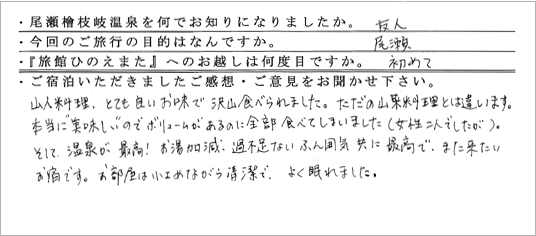 ・尾瀬檜枝岐温泉を何でお知りになりましたか。 友人
・今回のご旅行の目的はなんですか。 尾瀬
・『旅館ひのえまた』へのお越しは何度目ですか。 初めて
・ご宿泊いただきましたご感想・ご意見をお聞かせ下さい。
山人料理、とても良いお味で沢山食べられました。ただの山菜料理とは違います。
本当に美味しいのでボリュームがあるのに全部食べてしまいました(女性二人でしたが)。
そして、温泉が最高！お湯加減、過不足ないふん囲気共に最高で、また来たい
お宿です。お部屋は小さめながら清潔で、よく眠れました。